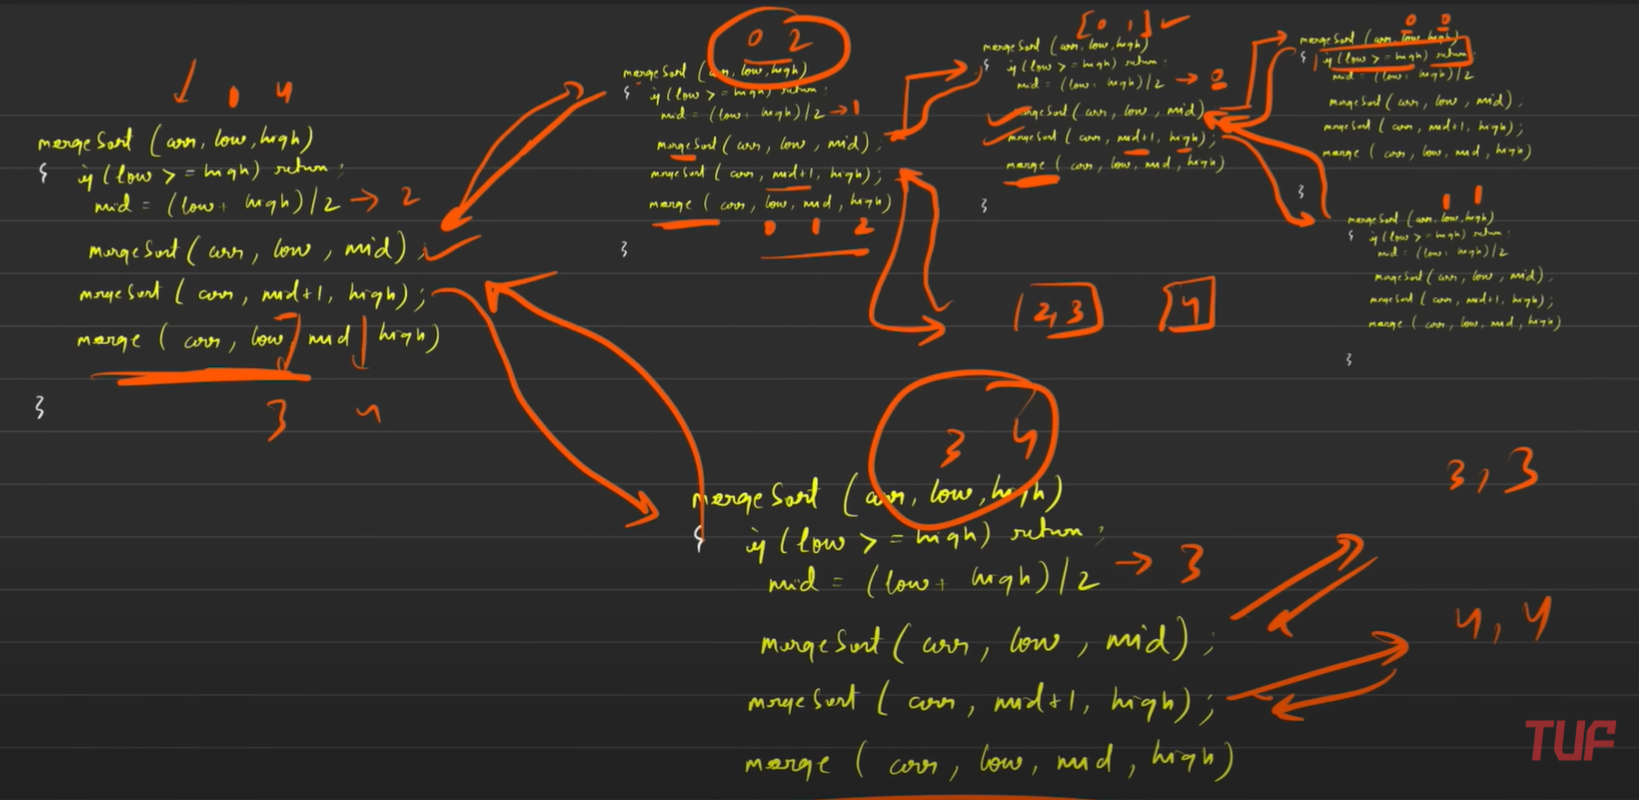 0 4
mergeSort (arr, low, high)
{ if (low >= high) return;
mid = (low + high)/2 → 2
mergeSort (arr, low, mid);
mergeSort (arr, mid+1, high);
merge (arr, low, mid, high)
}
3 4
0 2
mergeSort (arr, low, high)
{ if (low >= high) return;
mid = (low + high)/2 → 1
mergeSort (arr, low, mid);
mergeSort (arr, mid+1, high);
merge (arr, low, mid, high)
0 1 2
}
[0 1]
mergeSort (arr, low, high)
{ if (low >= high) return;
mid = (low + high)/2 → 0
mergeSort (arr, low, mid)
mergeSort (arr, mid+1, high);
merge (arr, low, mid, high)
}
0 0
mergeSort (arr, low, high)
{ if (low >= high) return;
mid = (low + high)/2
mergeSort (arr, low, mid);
mergeSort (arr, mid+1, high);
merge (arr, low, mid, high)
}
1 1
mergeSort (arr, low, high)
{ if (low >= high) return;
mid = (low + high)/2
mergeSort (arr, low, mid);
mergeSort (arr, mid+1, high);
merge (arr, low, mid, high)
}
2,3
4
3 4
mergeSort (arr, low, high)
{ if (low >= high) return;
mid = (low + high)/2 → 3
mergeSort (arr, low, mid);
mergeSort (arr, mid+1, high);
merge (arr, low, mid, high)
3, 3
4, 4
TUF